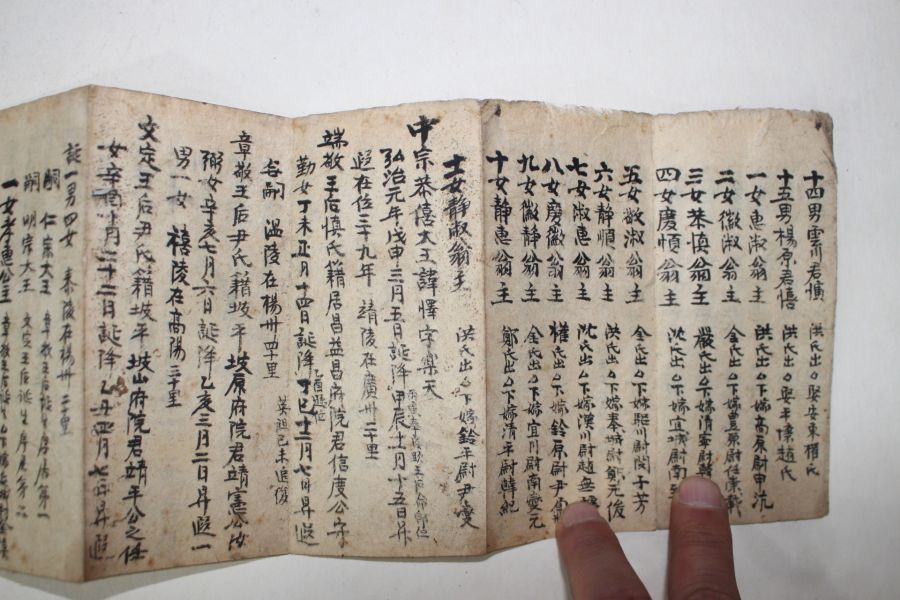 十四男雲川君𢢝 洪氏出○娶安東權氏
十五男楊原君憘 洪氏出○娶平壤趙氏
一女惠淑翁主 洪氏出○下嫁高原尉申沆
二女徽淑翁主 金氏出○下嫁豊原尉任崇載
三女恭愼翁主 嚴氏出○下嫁清寧尉韓
四女慶順翁主 沈氏出○下嫁宜城尉南
五女敬淑翁主 金氏出○下嫁驪川尉閔子芳
六女靜順翁主 洪氏出○下嫁奉城尉鄭元俊
七女淑惠翁主 洪氏出○下嫁漢川尉趙無
八女慶徽翁主 權氏出○下嫁鈴原尉尹
九女徽靜翁主 金氏出○下嫁宜川尉南燮元
十女靜惠翁主 鄭氏出○下嫁清平尉韓紀
士女靜淑翁主 洪氏出○下嫁鈴平尉尹燮
中宗恭僖大王諱懌字樂天
弘治元年戊申三月五日誕降甲辰十一月十五日昇
遐在位三十九年 靖陵在廣州二十里
端敬王后愼氏籍居昌益昌府院君信度公守
勤女丁未正月十四日誕降丁巳十二月七日昇遐
无嗣 溫陵在楊州四十里 英祖己未追復
章敬王后尹氏籍坡平 坡原府院君靖憲公汝
弼女辛亥七月六日誕降乙亥三月二日昇遐一
男一女 禧陵在高陽三十里
文定王后尹氏籍坡平 坡山府院君靖平公之任
女辛酉十月二十二日誕降乙丑四月七日昇遐
誕一男四女 泰陵在楊州二十里
嗣 仁宗大王 章敬王后誕生序居第一
嗣 明宗大王 文定王后誕生序居第二
一女孝惠公主